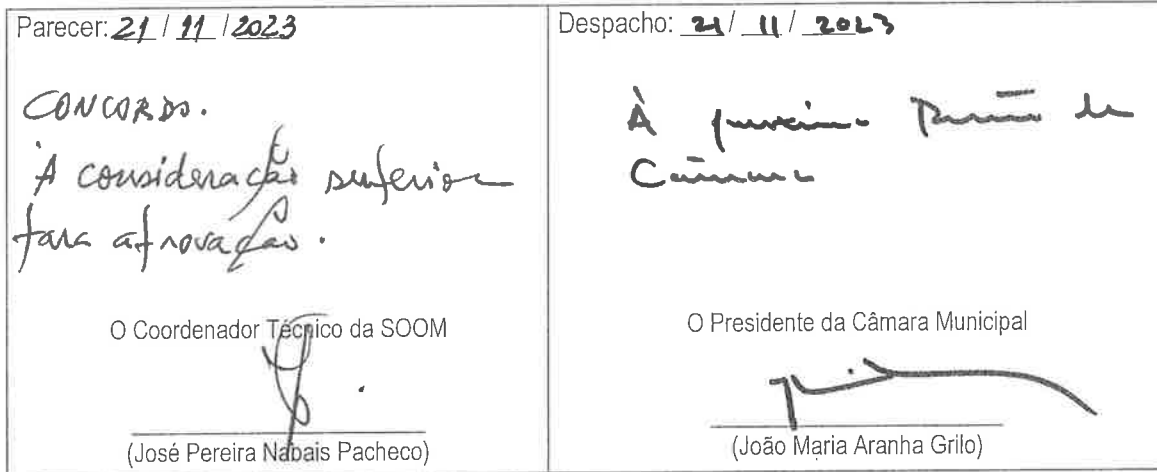 Parecer: 21 / 11 / 2023
CONCORDO.
À consideração superior
para aprovação.
O Coordenador Técnico da SOOM
(José Pereira Nabais Pacheco)
Despacho: 21 / 11 / 2023
À próxima Reunião de
Câmara
O Presidente da Câmara Municipal
(João Maria Aranha Grilo)